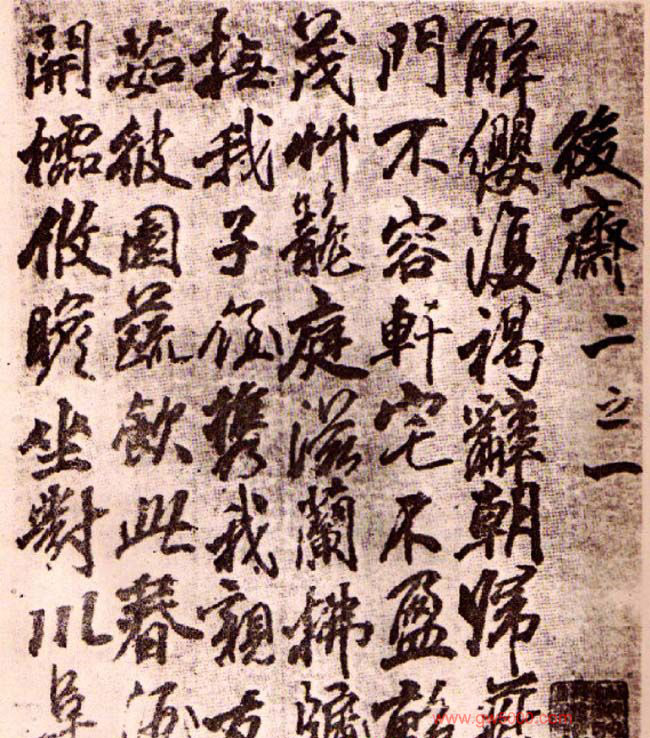 後齋二之一
解纓復褐辭朝歸
門不容軒宅不盈畝
茂艸籠庭滋蘭拂牖
撫我子侄攜我親友
茹彼園蔬飲此春酒
開櫺攸瞻坐對川阜